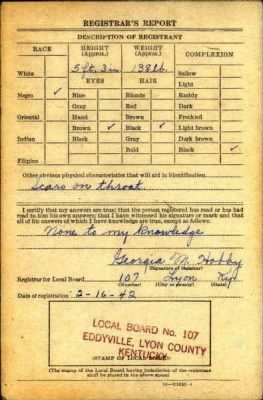 REGISTRAR'S REPORT
DESCRIPTION OF REGISTRANT
RACE HEIGHT (Approx.) WEIGHT (Approx.) COMPLEXION
5 ft. 3 in 138 lb.
White EYES HAIR Sallow
Light
Negro ✓ Blue Blonde Ruddy
Gray Red Dark
Oriental Hazel Brown Freckled
Brown ✓ Black ✓ Light brown
Indian Black Gray Dark brown
Bald Black ✓
Filipino
Other obvious physical characteristics that will aid in identification
Scars on throat
I certify that my answers are true; that the person registered has read or has had
read to him his own answers; that I have witnessed his signature or mark and that
all of his answers of which I have knowledge are true, except as follows:
None to my knowledge
Georgia M. Hobby
(Signature of registrar)
Registrar for Local Board 107 Lyon Ky.
(Number) (City or county) (State)
Date of registration 2-16-42
LOCAL BOARD No. 107
EDDYVILLE, LYON COUNTY
KENTUCKY
(STAMP OF LOCAL BOARD)
(The stamp of the Local Board having jurisdiction of the registrant
shall be placed in the above space)